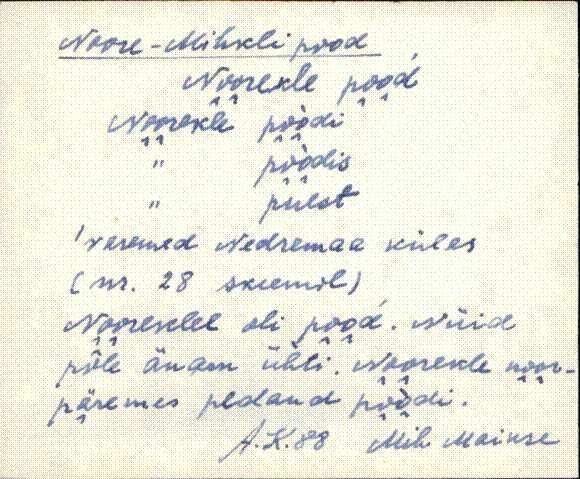 Noore-Mihkli pood
Noorekle pood
Noorekle pòòdi
" pòòdis
" puest
varemed Nedremaa külas
(nr. 28 skeemil)
Nooreklel oli pood. Nüid
põle änam ühti. Noorekle noor-
päremes pidand pòòdi.
A.K. 88 Mih